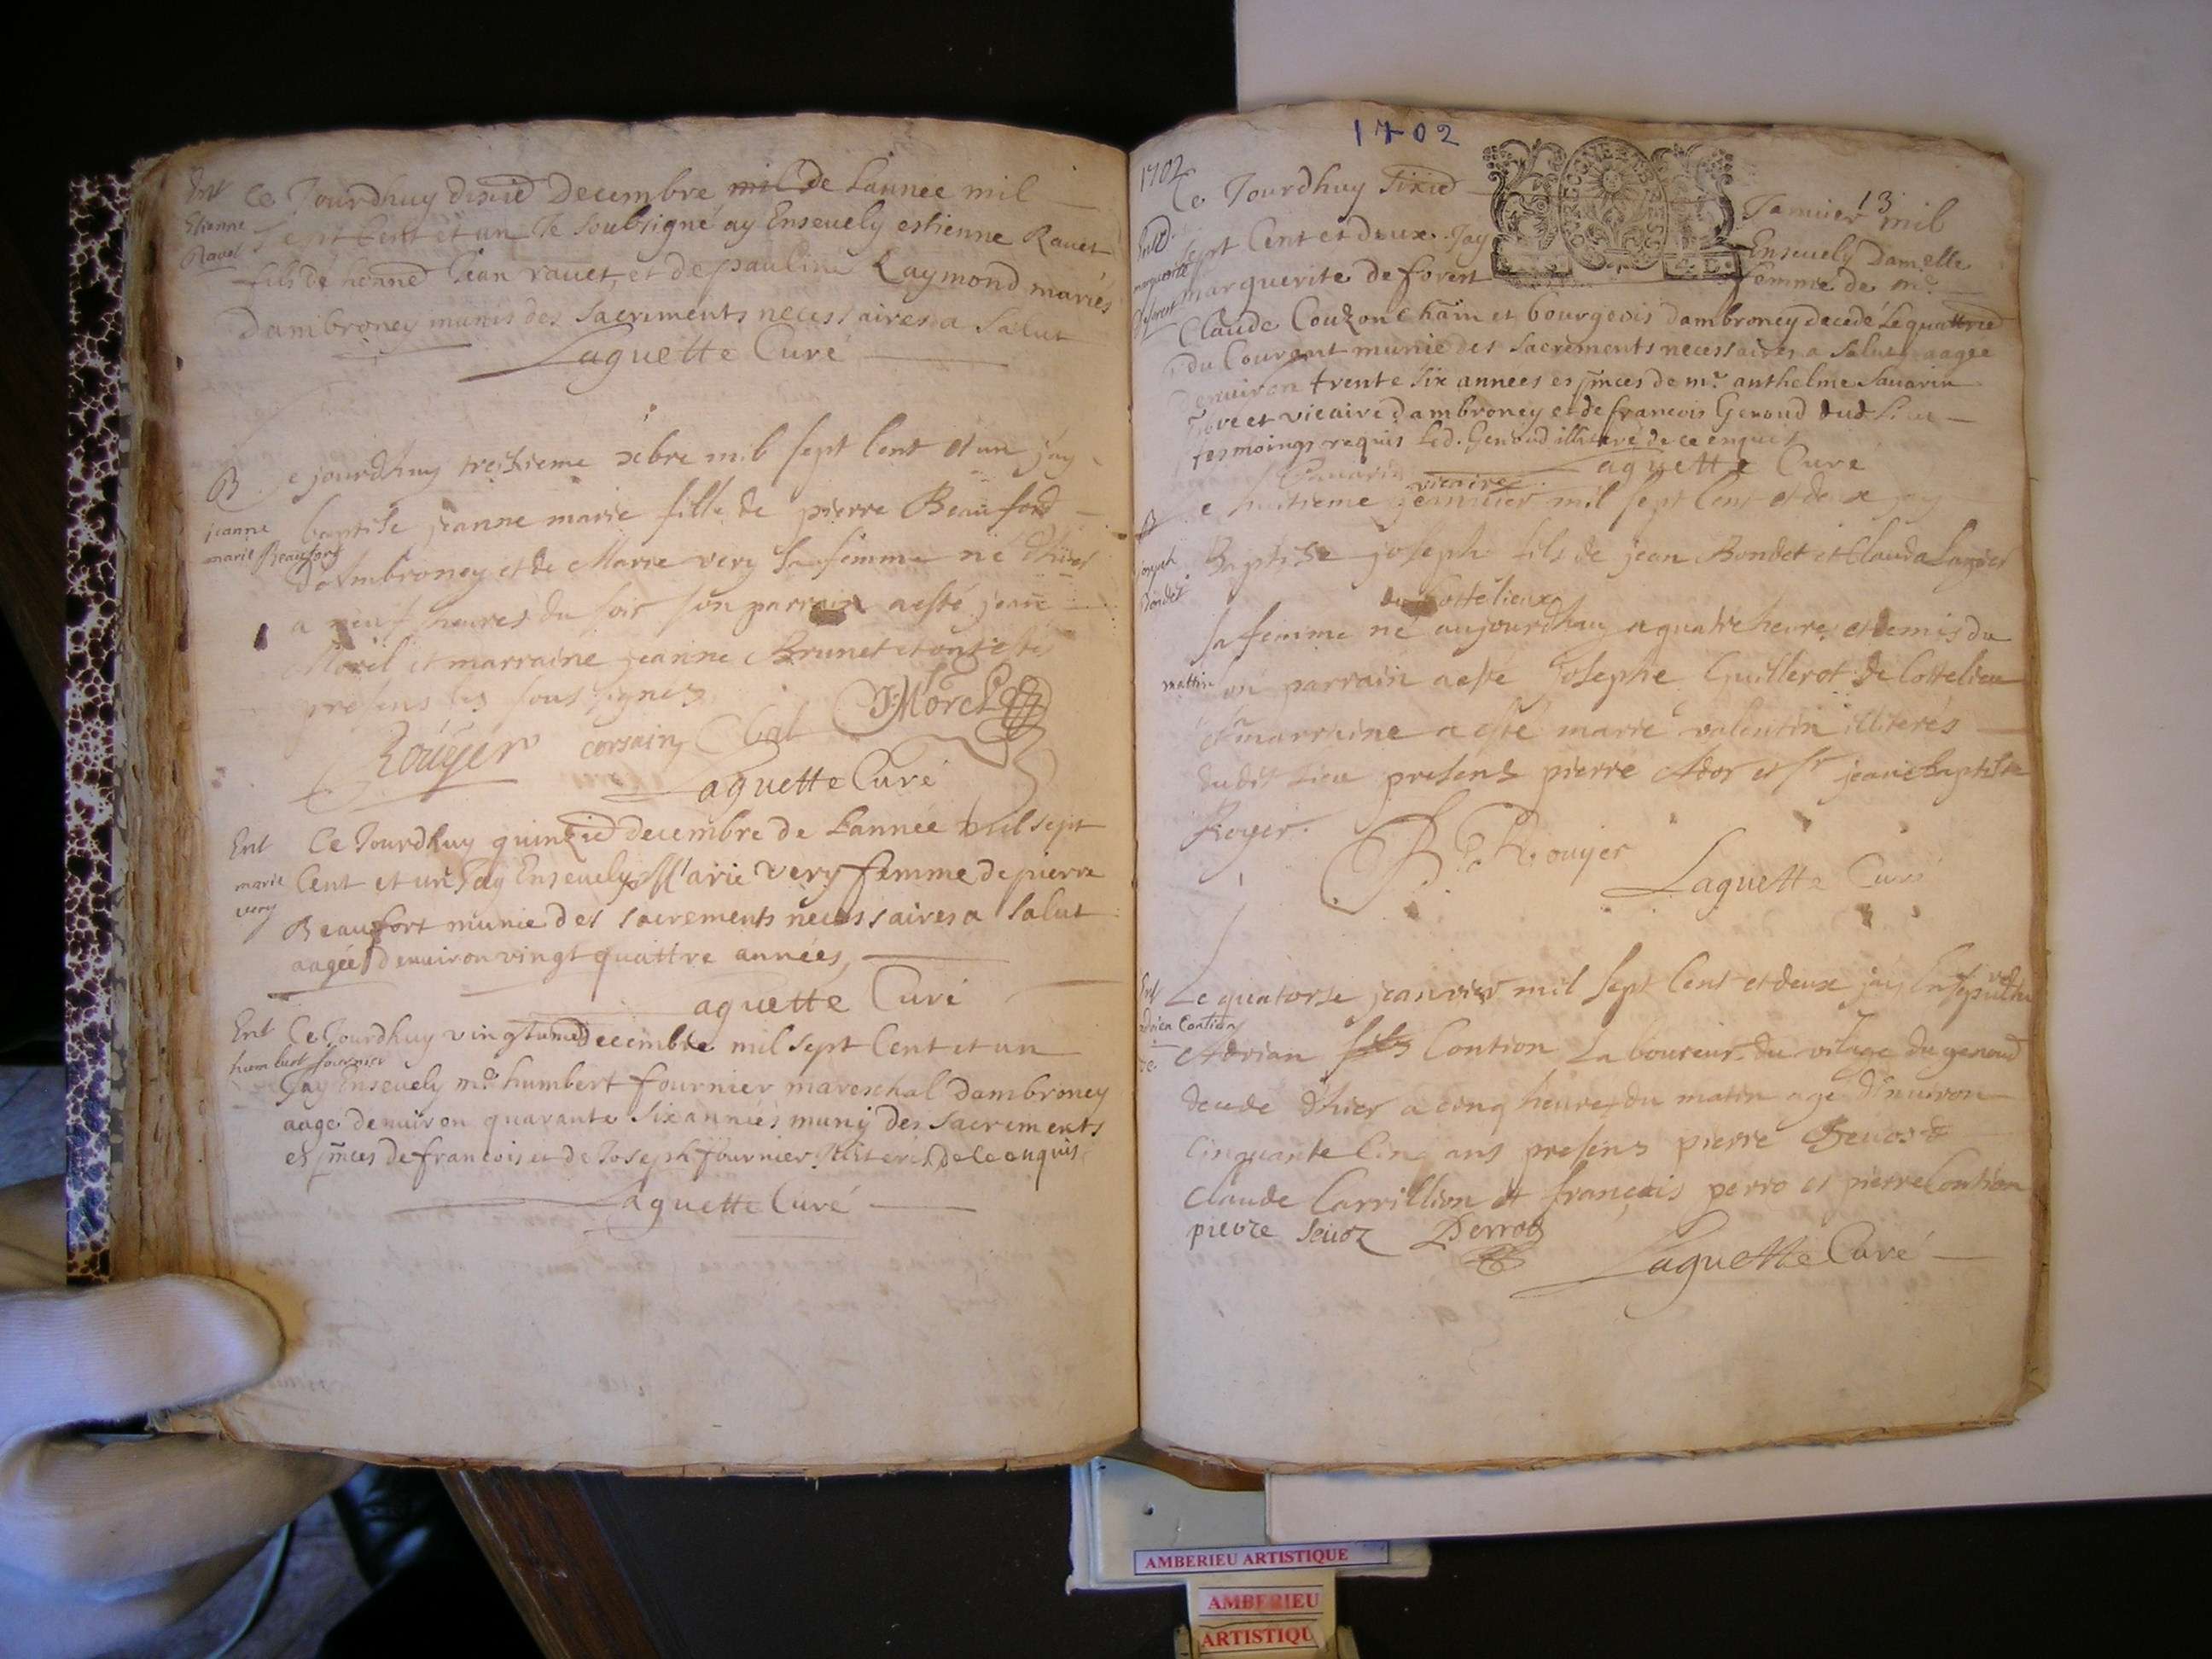 Ent Ce Jourdhuy dixie Decembre mil de Lannee mil
Etienne Ravet
sept Cent et un Je soubsigné ay Enseuely estienne Rauet
fils de honne Jean rauet, et de pauline Raymond mariés
dambroney munis des Sacrements necessaires a Salut
Laguette Curé
B Ce jourdhuy treizieme xbre mil sept Cent et un jay
jeanne marie Beaufort
baptise jeanne marie fille de pierre Beauford
dambroney et de Marie very sa femme né dhier
a neuf heures du soir son parrain a esté jean
Morel et marraine jeanne Brunet et ont estes
presens les sous signes
Roüyer corsain J: Morel
Laguette Curé
Ent Ce Jourdhuy quinzie decembre de Lannee mil sept
marie very
Cent et un Jay Enseuely Marie very femme de pierre
Beaufort munie des sacrements necessaires a salut
aagée denuiron vingt quattre années
Laguette Curé
Ent Ce Jourdhuy vingtune decembre mil sept Cent et un
humbert fournier
Jay Enseuely me humbert fournier mareschal dambroney
aage denuiron quarante six années muny des sacrements
es pnces de francois et de Joseph fournier Illiteres de ce enquis
Laguette Curé
1702
1702
Ce Jourdhuy sixie Januier 13 mil
sept Cent et deux. Jay Enseuely Damelle
marguerite deforest
marguerite de forest femme de me
Claude Couzon cham et bourgeois dambroney decedé Le quattrie
du Courant munie des sacrements necessaires a salut aagee
denuiron trente six annees es pnces de me anthelme Sauarin
pbre et vicaire dambroney et de francois Genoud dud Lieu
tesmoings requis Led. Genoud illiteré de ce enquis
Sauarin vicaire Laguette Curé
B Ce huitieme jeanuier mil sept Cent et deux jay
joseph Bondet
Baptise joseph fils de jean Bondet et Clauda
du Cottelieux
sa femme né aujourdhuy a quatre heures et demis du
mattin son parrain a esté Josephe Guillerot de Cottelieu
et sa marraine a esté marie valentin illiterés
dudit Lieu presens pierre Ador et sr jean Baptiste
Royer.
J B Roüyer Laguette Curé
Ent Le quatorse jeanvier mil sept Cent et deux jay
adrien Contion
Adrian Contion Laboureur du vilage du genoud
decede dhier a cinq heures du matin agé denuiron
Cinquante Cinq ans presens pierre
Claude Carrillion et françois perro et pierre Contion
pierre Seuoz Perrod
Laguette Curé
AMBERIEU ARTISTIQUE
AMBERIEU
ARTISTIQU